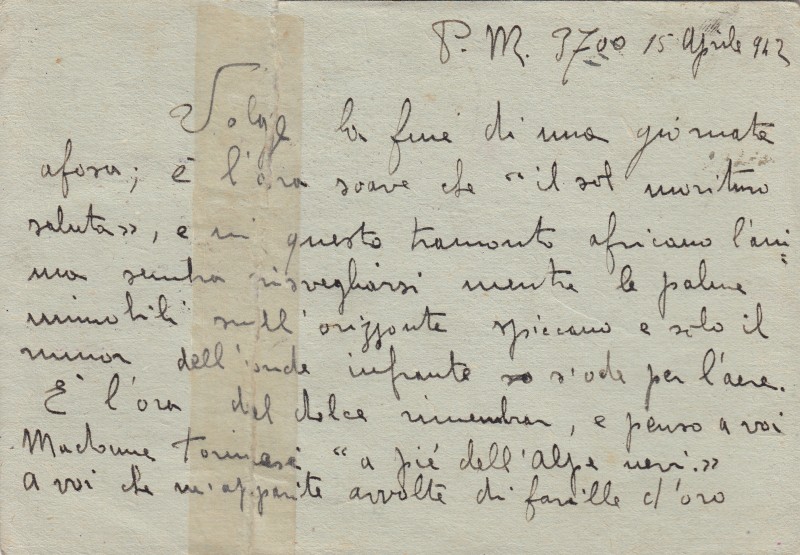 P. M. 3700 15 Aprile 942
Volge la fine di una giornata
afosa; è l'ora soave che "il sol morituro
saluta», e in questo tramonto africano l'ani=
ma sembra risvegliarsi mentre le palme
immobili sull'orizzonte spiccano e solo il
rumor dell'onde infrante s'ode per l'aere.
È l'ora del dolce rimembrar, e penso a voi
Madame torinesi "a piè dell'Alpe nevi.»
A voi che m'apparite avvolte di faville d'oro